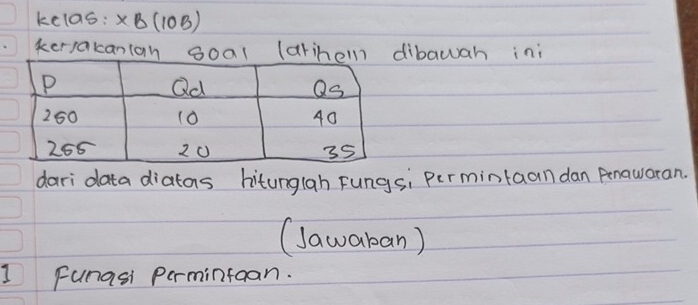 kelas: X B (10B)
kerjakanlah soal latihein dibawah ini
P Qd Qs
260 10 40
266 20 35
dari data diatas hitunglah Fungsi Permintaan dan Penawaran.
(Jawaban)
1 Fungsi Permintaan.